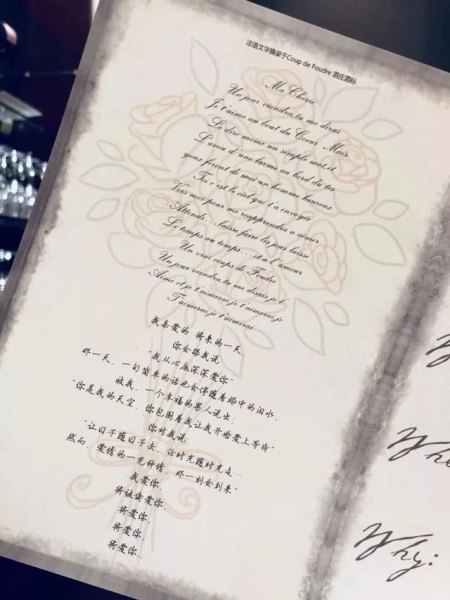 法语文字摘录于Coup de Foudre 酒庄酒标
Ma Cherie
Un jour viendra, tu me diras
Je t'aime au bout du Cœur Mais
Le dire meme un simple mot, et
L'aveu d'une larme au bord des tes
yeux feront de moi un homme heureux
Toi c'est le ciel qui t'a envoyée
Vers moi pour me réapprendre a aimer
Attends... laisse faire les jours laisse
Le temps au temps... Au l'amour
Un vrai coup de Foudre
Un jour viendra, tu me disais je t'
Aime et je t'aimerai, je t'aimerai, je
T'aimerai, je t'aimerai
我亲爱的 将来的一天，
你会跟我说，
“我从心底深深爱你”
那一天，一句简单的话也会伴随着眼中的泪水，
被我，一个幸福的男人说出，
“你是我的天空，你包围着我让我开始爱上等待”
你对我说，
“让日子随日子去，让时光随时光走...
然而，爱情的一见钟情，那一刻会到来”
我爱你，
将继续爱你，
将爱你，
将爱你，
将爱你...
Why: